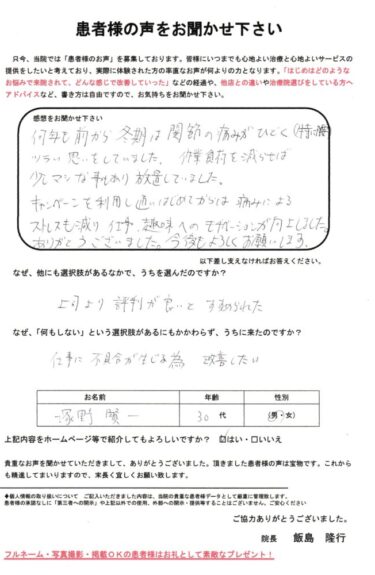 患者様の声をお聞かせ下さい
只今、当院では「患者様のお声」を募集しております。皆様にいつまでも心地よい治療と心地よいサービスの
提供をしたいと考えており、実際に体験された方の率直なお声が何よりの力となります。「はじめはどのような
お悩みで来院されて、どんな感じで改善していった」などの経過や、他店との違いや治療院選びをしている方へ
アドバイスなど、書き方は自由ですので、お気持ちをお聞かせ下さい。
感想をお聞かせ下さい
何年も前から冬期は関節の痛みがひどく(特に腰)
ツラい思いをしていました。作業負荷を減らせば
少しマシな事もあり放置していました。
キャンペーンを利用し通いはじめてからは痛みによる
ストレスも減り仕事、趣味へのモチベーションが向上しました。
ありがとうございました。今後もよろしくお願いします。
以下差し支えなければお答えください。
なぜ、他にも選択肢があるなかで、うちを選んだのですか?
上司より評判が良いとすすめられた
なぜ、「何もしない」という選択肢があるにもかかわらず、うちに来たのですか?
仕事に不具合が生じる為 改善したい
お名前 年齢 性別
塚野 賢一 30代 男・女
上記内容をホームページ等で紹介してもよろしいですか? ☑はい・□いいえ
貴重なお声を聞かせていただきまして、ありがとうございました。頂きました患者様の声は宝物です。これから
も精進してまいりますので、末長く宜しくお願い致します。
◆個人情報の取り扱いについて ご記入いただきました内容は、当院の貴重な患者様データとして厳重に管理致します。
患者様の承諾なしに「第三者への開示」や上記以外での使用、外部への開示・提供等することはございません、ご安心ください
ご協力ありがとうございました。
院長 飯島 隆行
フルネーム・写真撮影・掲載OKの患者様はお礼として素敵なプレゼント!